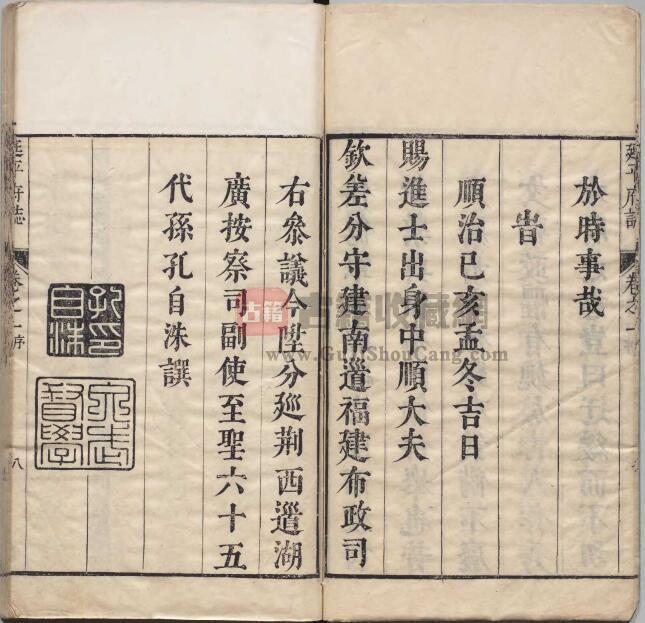 於時事哉
旹
順治己亥孟冬吉日
賜進士出身中順大夫
欽差分守建南道福建布政司
右叅議今陞分廵荆西道湖
廣按察司副使至聖六十五
代孫孔自洙譔
延平府誌
卷之一
序
延平府誌
卷之一
序
八
孔印自洙
古籍
古籍收藏
www.GuJiShouCang.com